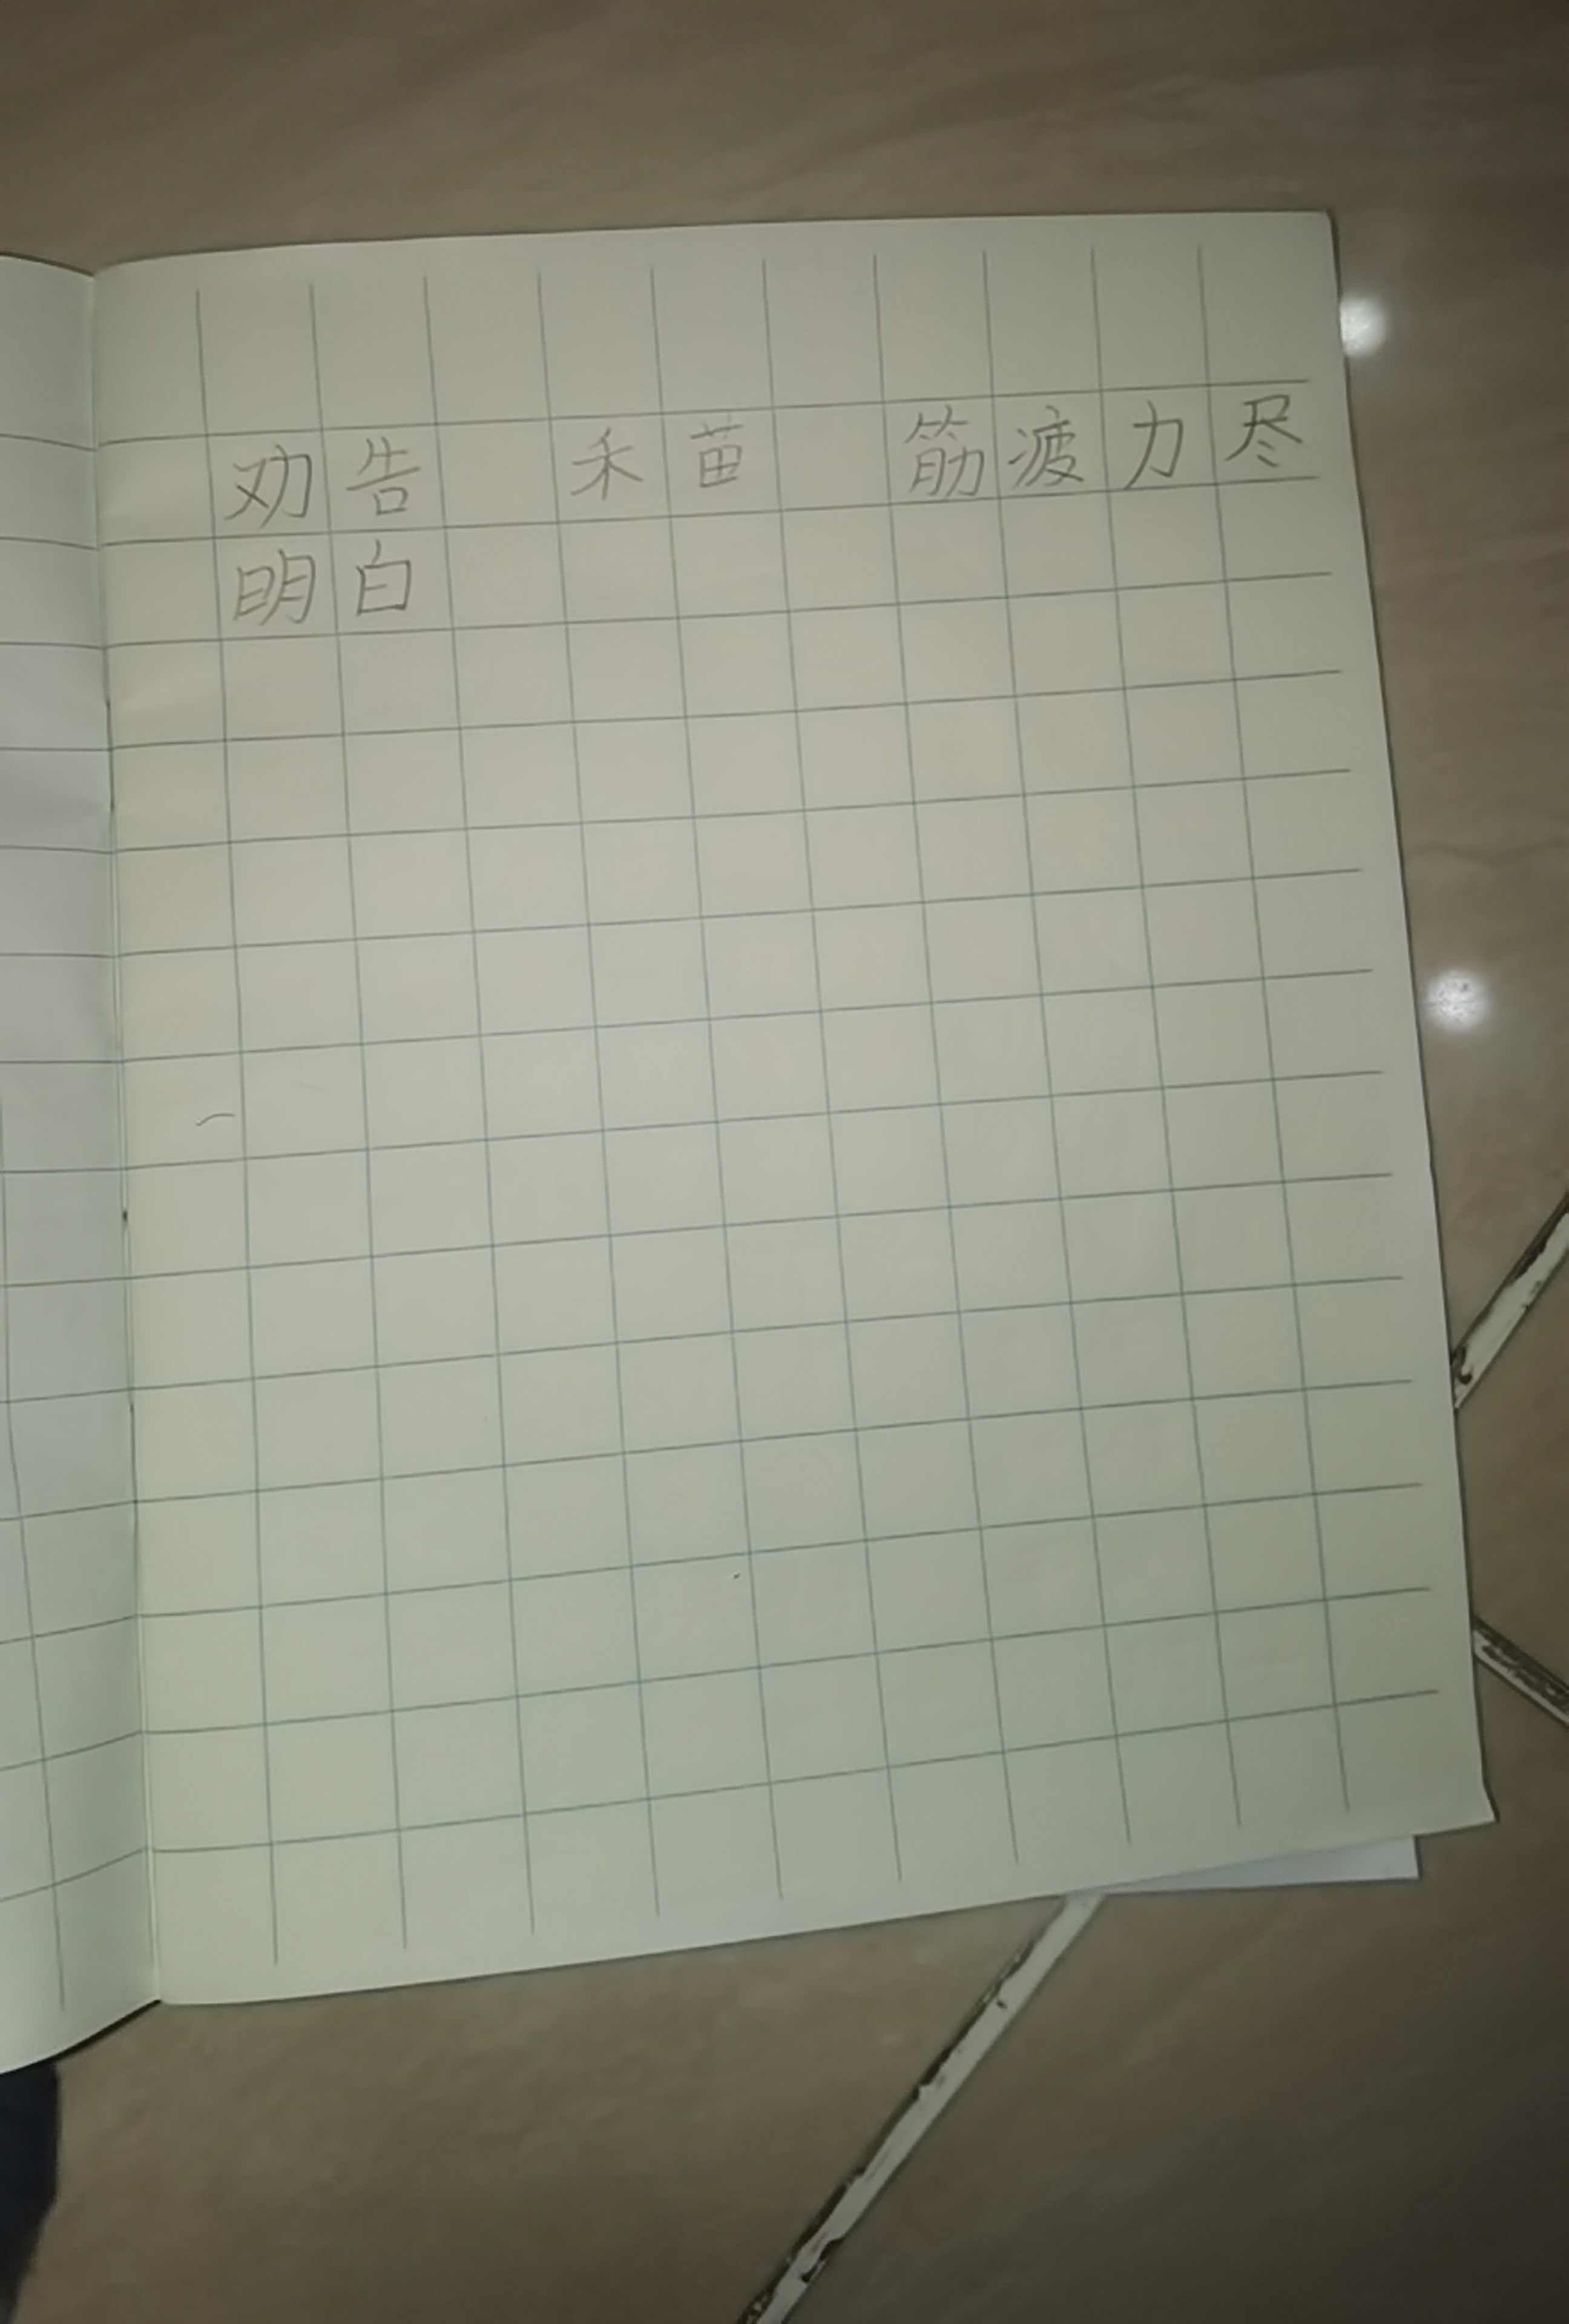 劝告 禾苗 筋疲力尽
明白